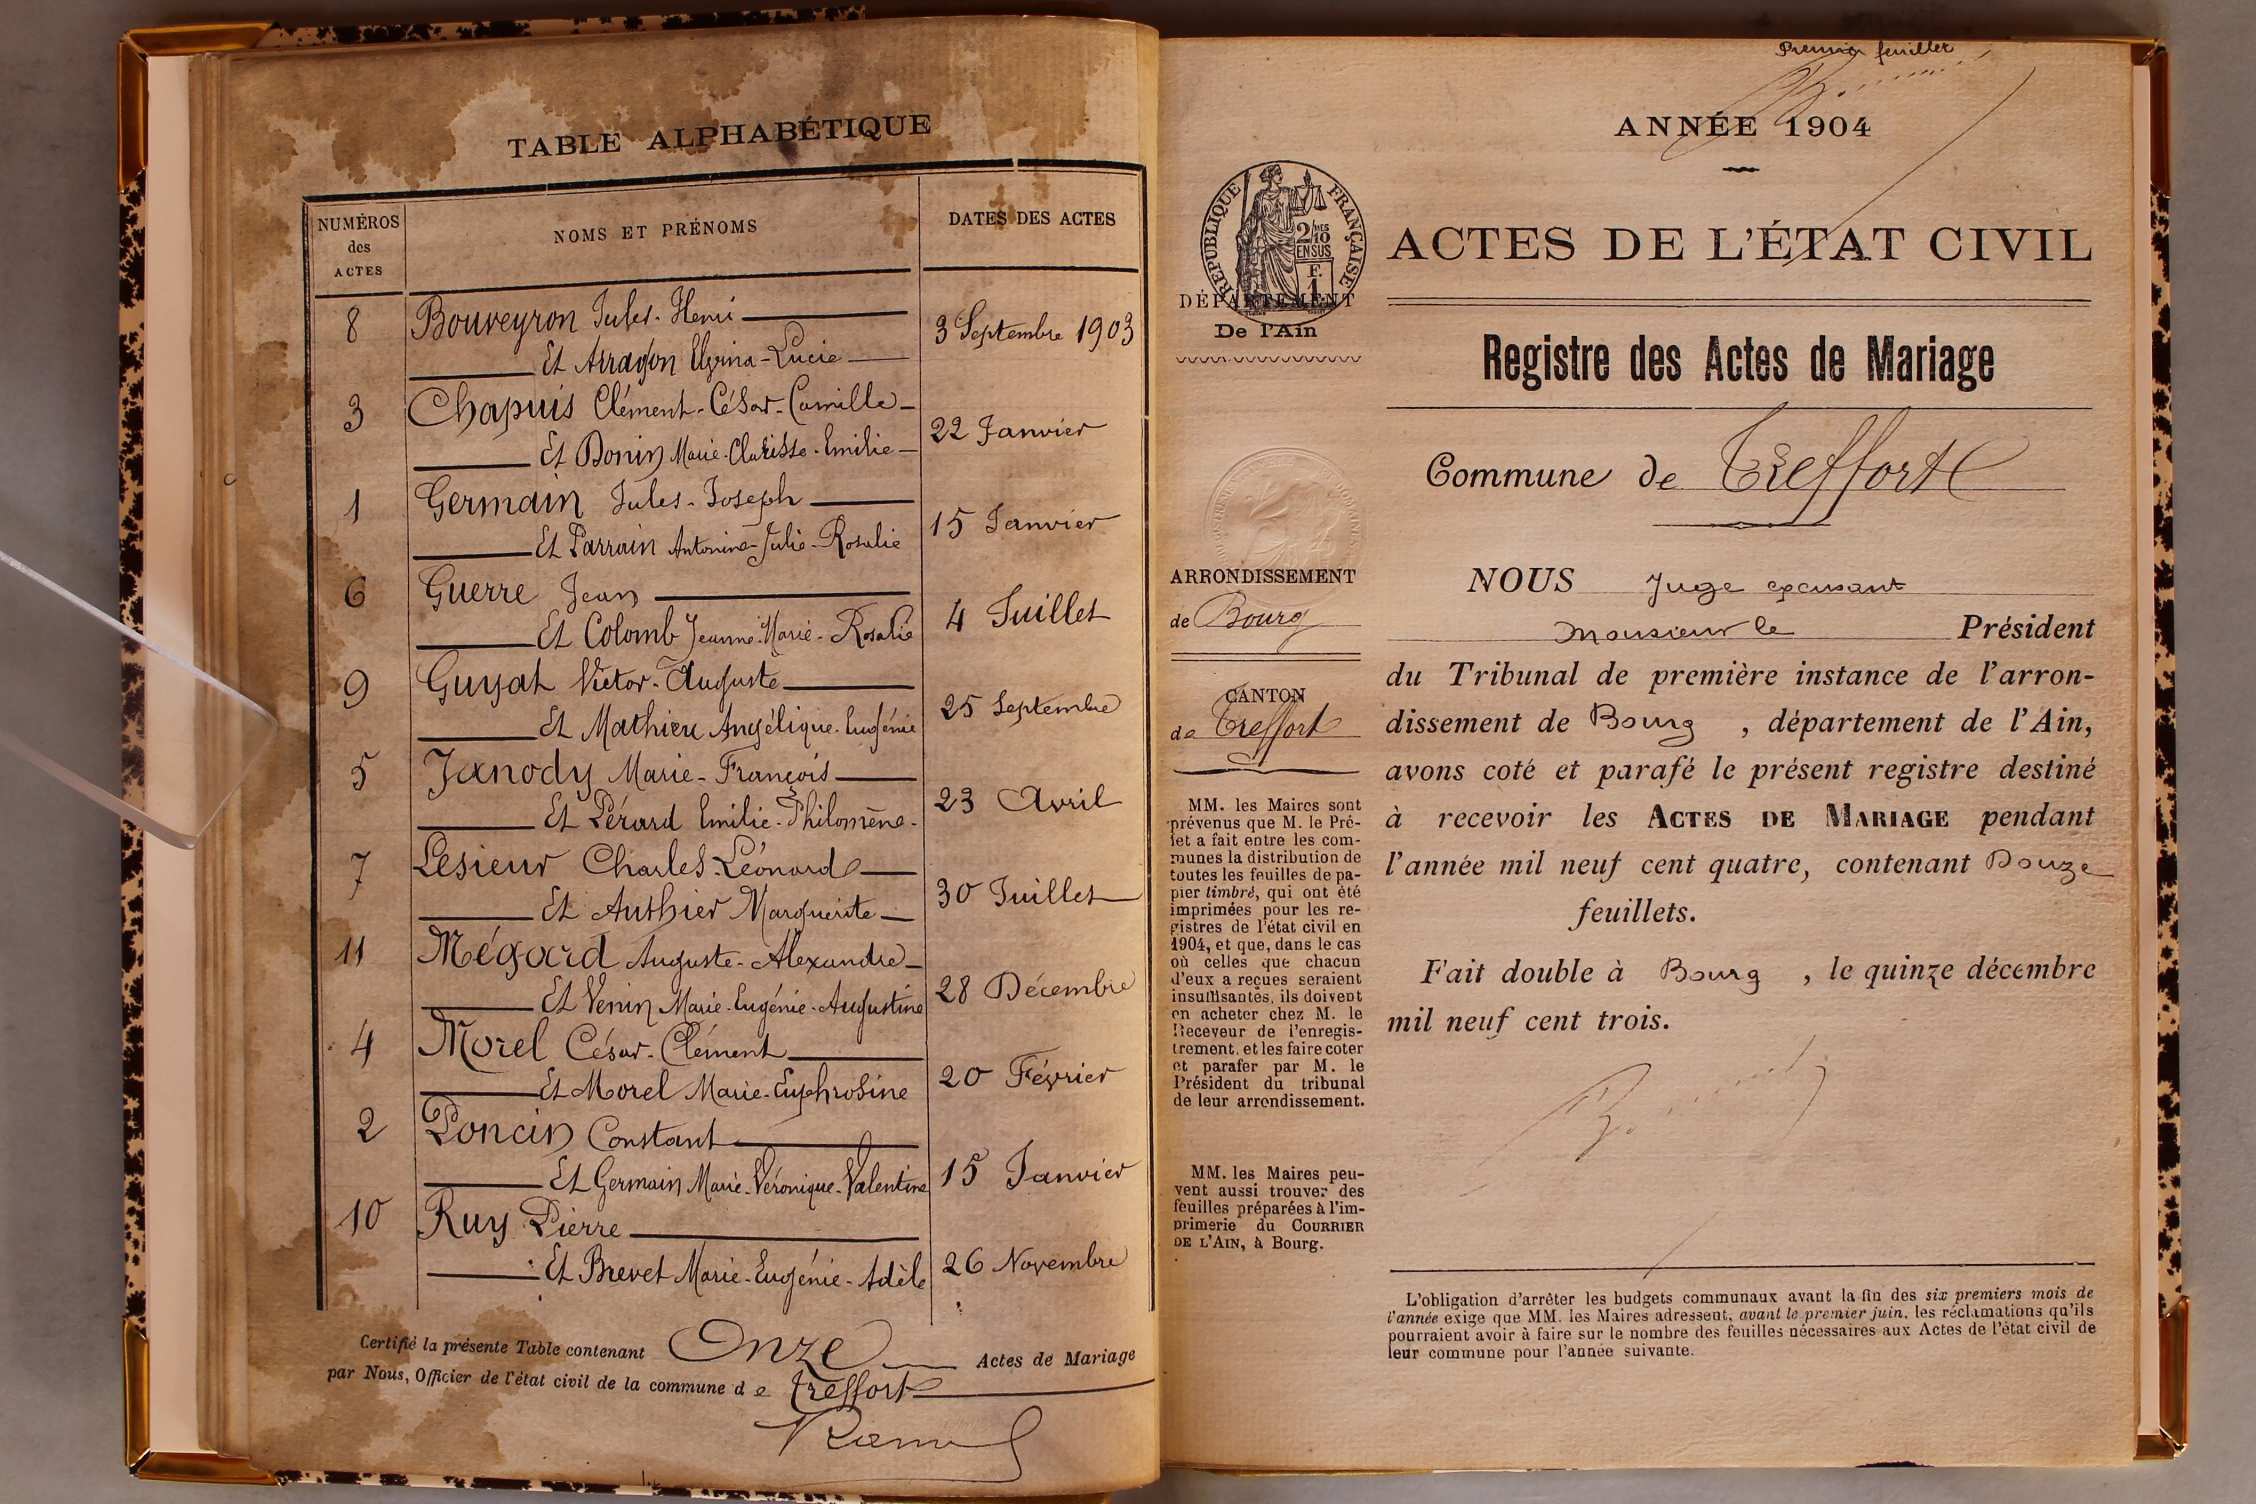 TABLE ALPHABÉTIQUE
NUMÉROS des ACTES
NOMS ET PRÉNOMS
DATES DES ACTES
8 Bouveyron Jules-Henri
Et Arragon Elvina-Lucie
3 Septembre 1903
3 Chapuis Clément-César-Camille
Et Donin Marie-Clarisse-Emilie
22 Janvier
1 Germain Jules-Joseph
Et Parrain Antonine-Julie-Rosalie
15 Janvier
6 Guerre Jean
Et Colomb Jeanne-Marie-Rosalie
4 Juillet
9 Guyat Victor-Auguste
Et Mathieu Angélique-Eugénie
25 Septembre
5 Janody Marie-François
Et Pérard Emilie-Philomène
23 Avril
7 Lesieur Charles-Léonard
Et Authier Marguerite
30 Juillet
11 Mégard Auguste-Alexandre
Et Venin Marie-Eugénie-Augustine
28 Décembre
4 Morel César-Clément
Et Morel Marie-Euphrosine
20 Février
2 Poncin Constant
Et Germain Marie-Véronique-Valentine
15 Janvier
10 Ruy Pierre
Et Brevet Marie-Eugénie-Adèle
26 Novembre
Certifié la présente Table contenant Onze Actes de Mariage
par Nous, Officier de l'état civil de la commune de Treffort
Premier feuillet
ANNÉE 1904
RÉPUBLIQUE FRANÇAISE
2/10 MES
EN SUS
F. 1
DÉPARTEMENT
De l'Ain
ACTES DE L'ÉTAT CIVIL
Registre des Actes de Mariage
Commune de Treffort
ARRONDISSEMENT
de Bourg
CANTON
de Treffort
MM. les Maires sont
prévenus que M. le Pré-
fet a fait entre les com-
munes la distribution de
toutes les feuilles de pa-
pier timbré, qui ont été
imprimées pour les re-
gistres de l'état civil en
1904, et que, dans le cas
où celles que chacun
d'eux a reçues seraient
insuffisantes, ils doivent
en acheter chez M. le
Receveur de l'enregis-
trement, et les faire coter
et parafer par M. le
Président du tribunal
de leur arrondissement.
MM. les Maires peu-
vent aussi trouver des
feuilles préparées à l'im-
primerie du COURRIER
DE L'AIN, à Bourg.
NOUS Juge excusant
Monsieur le Président
du Tribunal de première instance de l'arron-
dissement de Bourg , département de l'Ain,
avons coté et parafé le présent registre destiné
à recevoir les ACTES DE MARIAGE pendant
l'année mil neuf cent quatre, contenant Douze
feuillets.
Fait double à Bourg , le quinze décembre
mil neuf cent trois.
L'obligation d'arrêter les budgets communaux avant la fin des six premiers mois de
l'année exige que MM. les Maires adressent, avant le premier juin, les réclamations qu'ils
pourraient avoir à faire sur le nombre des feuilles nécessaires aux Actes de l'état civil de
leur commune pour l'année suivante.